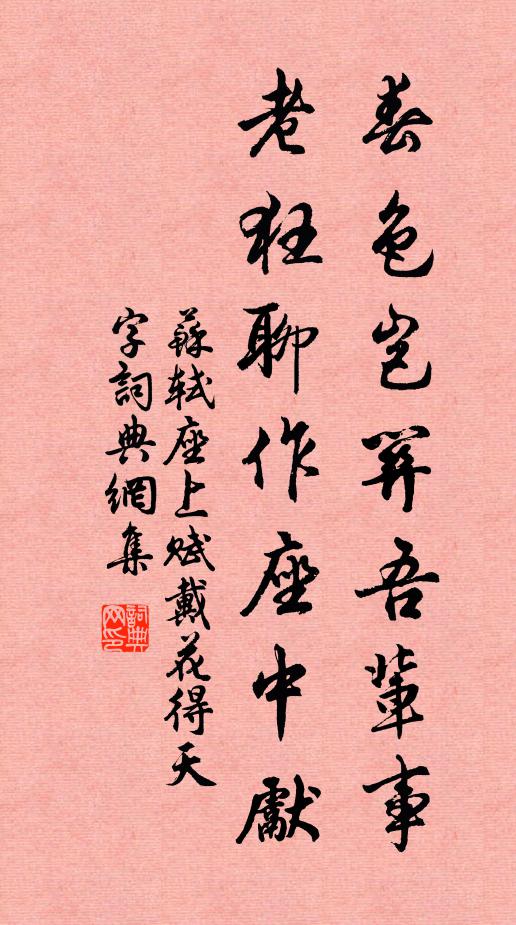 春色豈關吾輩事
老狂聊作座中獻
蘇軾座上賦戴花得天
字詞典網集
詞典
网印